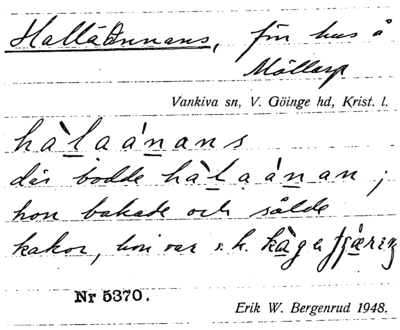 Hallåånnans, förr hus å
Möllarp
Vankiva sn, V. Göinge hd, Krist. l.
hàlaánans
där bodde hàlaánan;
hon bakade och sålde
kakor, hon var s. k.
Nr 5370.
Erik W. Bergenrud 1948.